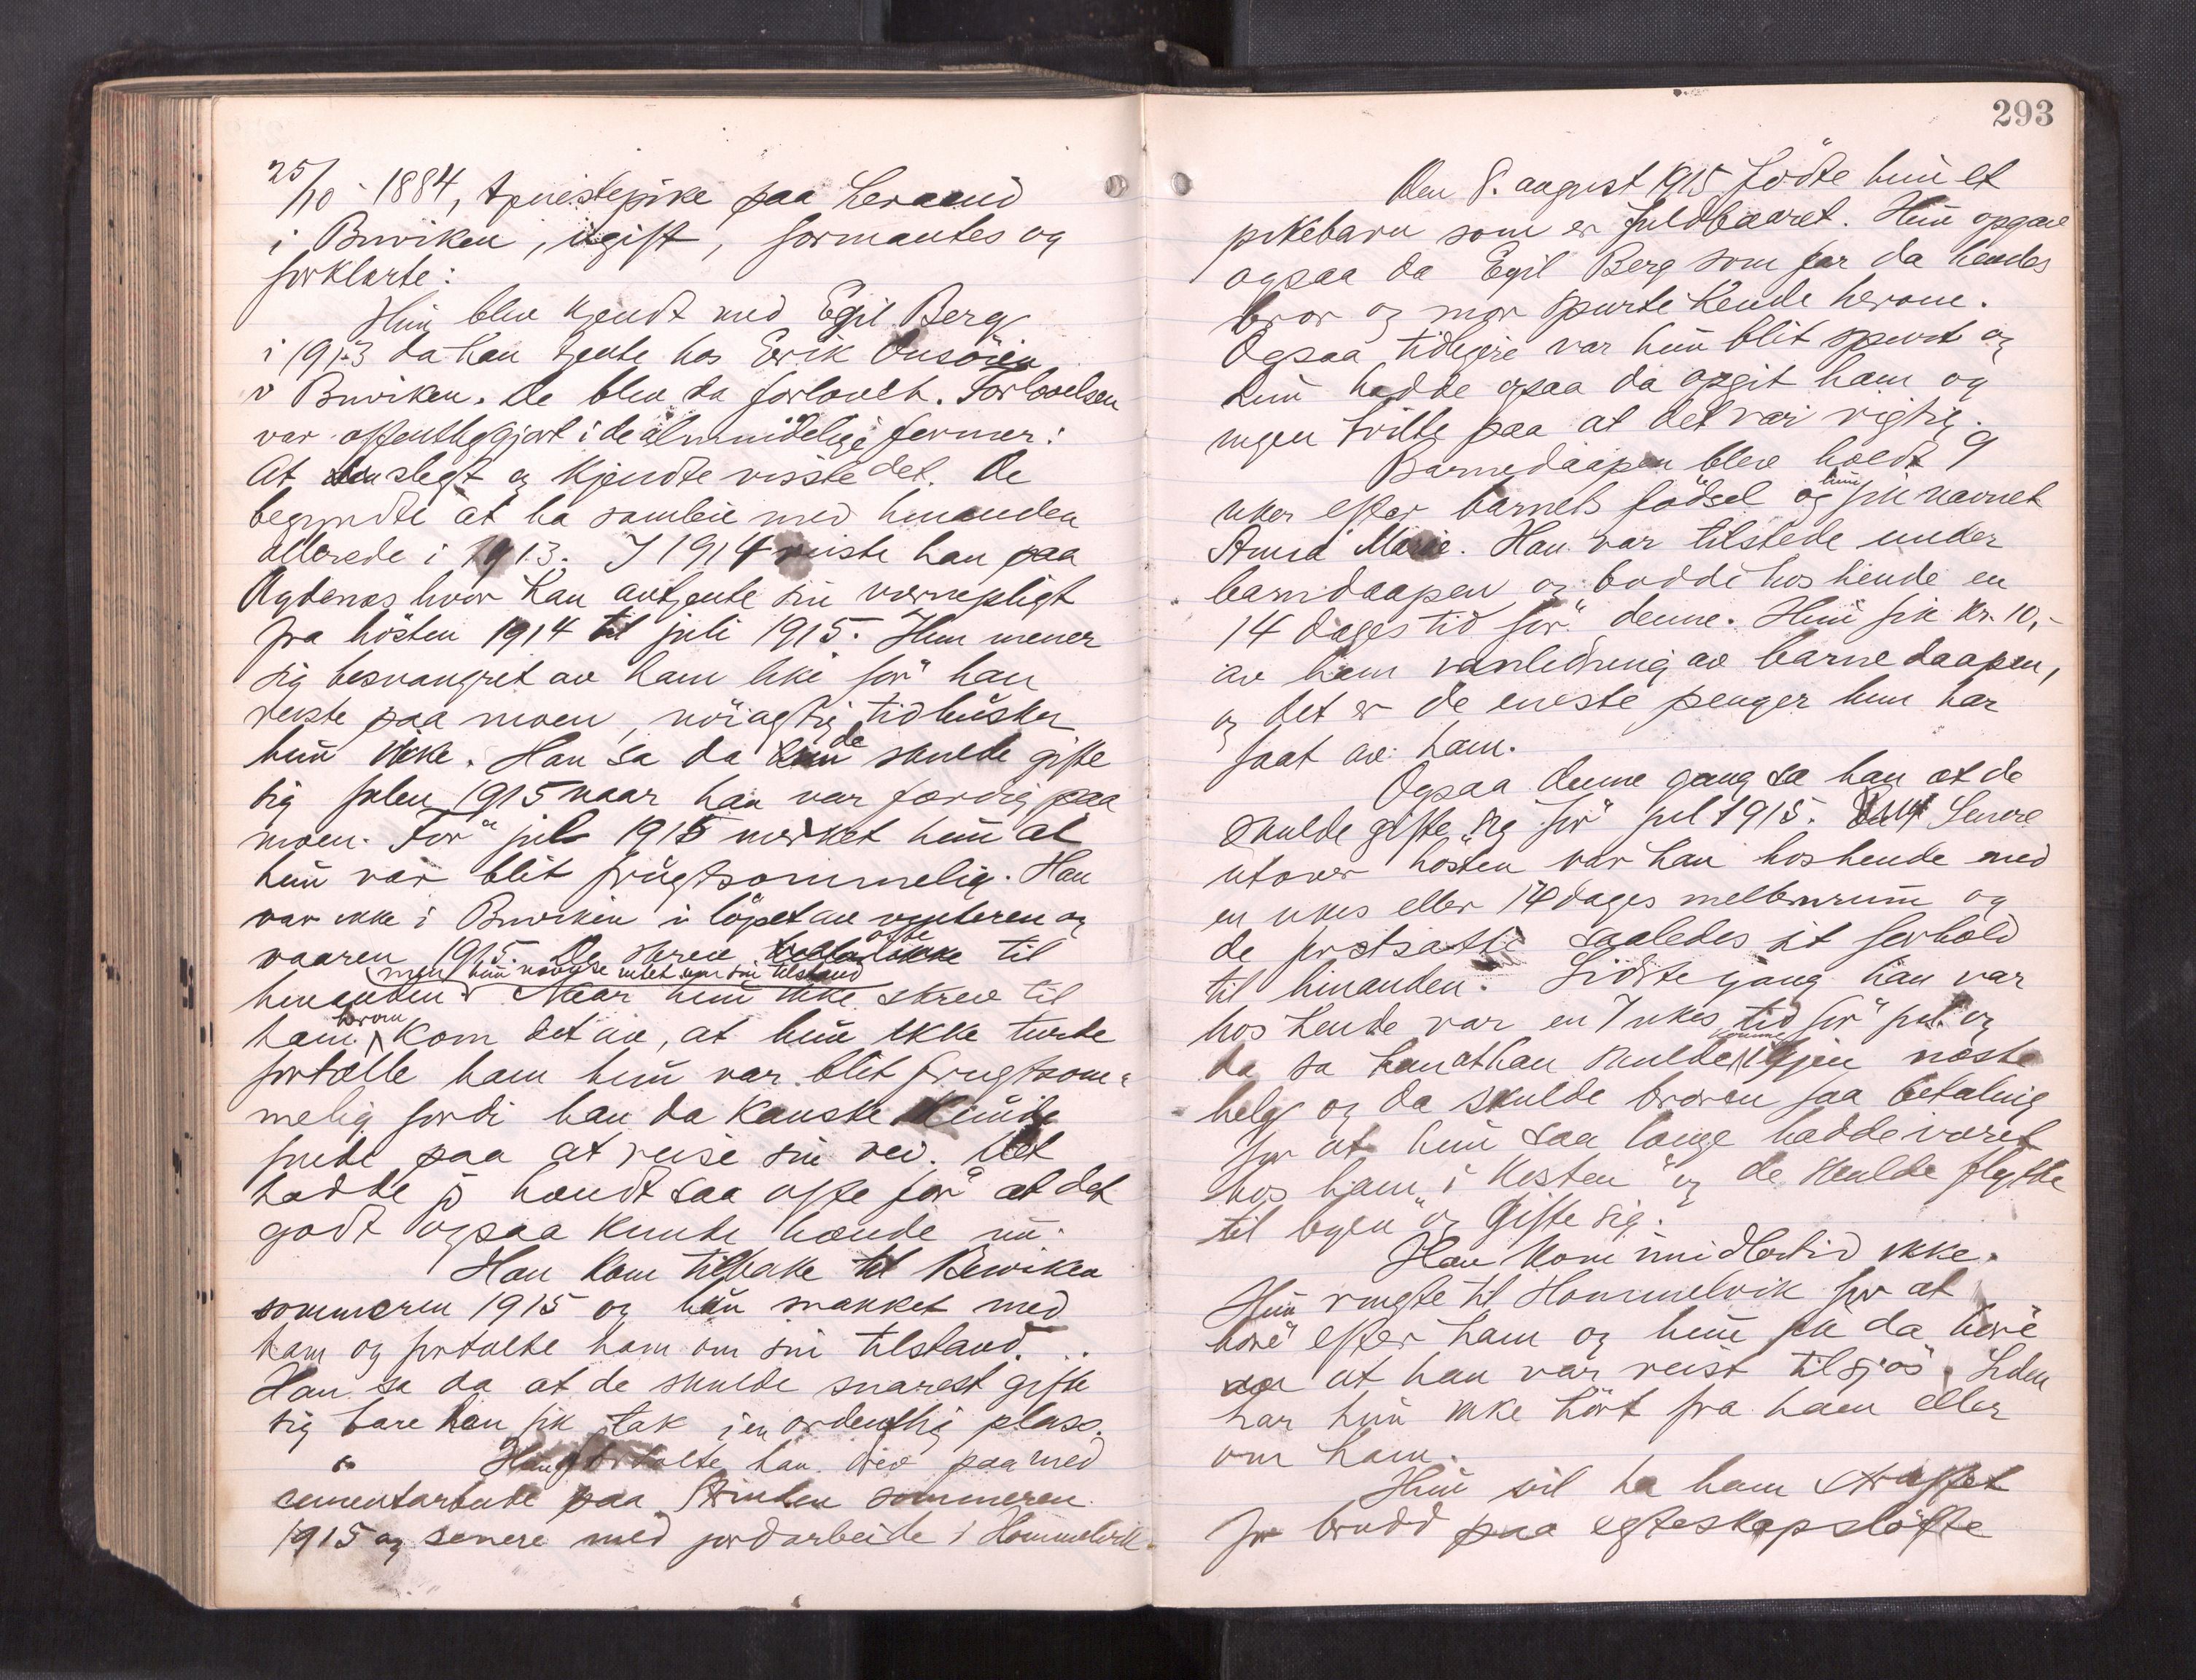 25/10 - 1884, tjenestepike paa Leraand
i Buviken, ugift, formantes og
forklarte:
Hun blev kjendt med Egil Berg
i 1913 da han tjente hos Erik Onsöien
i Buviken. De blev da forlovelt. Forlovelsen
var offentliggjort i de almindelige former:
At slegt og kjendte visste det. De
begyndte at ha samleie med hinanden
allerede i 1913. I 1914 reiste han paa
Agdenes hvor han avtjente sin vernepligt
fra hösten 1914 til juli 1915. Hun mener
sig besvangret av ham like för han
reiste paa moen, nöiagtig tid husker
hun ikke. Han sa da de skulde gifte
sig julen 1915 naar han var færdig paa
moen. För jul 1915 merket hun at
hun var blit frugtsommelig. Han
var ikke i Buviken i löpet av vinteren og
vaaren 1915. De skrev ofte til
hinanden men hun nævnte intet om sin tilstand. Naar hun ikke skrev til
ham herom kom det av, at hun ikke turde
fortælle ham hun var blit frugtsom-
melig fordi han da kanske kunde
finde paa at reise sin vei. Det
hadde jo hændt saa ofte för at det
godt ogsaa kunde hænde nu.
Han kom tilbake til Buviken
sommeren 1915 og hun snakket med
ham og fortalte ham om sin tilstand.
Han sa da at de skulde snarest gifte
sig bare han fik tak i en ordentlig plass.
Han fortalte han drev paa med
cementarbeide paa Strinden sommeren
1915 og senere med jordarbeide i Hommelvik.
293
Den 8. august 1915 födte hun et
pikebarn som er fuldbaaret. Hun opgav
ogsaa da Egil Berg som far da hendes
bror og mor spurte hende herom.
Ogsaa tidligere var hun blit spurt og
hun hadde ogsaa da opgit ham og
ingen tvilte paa at det var rigtig.
Barnedaapen blev holdt 9
uker efter barnets födsel og hun fik navnet
Anna Marie. Han var tilstede under
barndaapen og bodde hos hende en
14 dages tid för denne. Hun fik kr. 10,-
av ham i anledning av barnedaapen,
og det er de eneste penger hun har
faat av ham.
Ogsaa denne gang sa han at de
skulde gifte sig för jul 1915. Senere
utover hösten var han hos hende med
en ukes eller 14 dages mellemrum og
de fortsatte saaledes sit forhold
til hinanden. Sidste gang han var
hos hende var en 7 ukes tid för jul og
da sa han at han skulde komme igjen næste
helg og da skulde broren faa betaling
for at hun saa længe hadde været
hos ham "i kosten" og de skulde flytte
til byen og gifte sig.
Han kom imidlertid ikke.
Hun ringte til Hommelvik for at
höre efter ham og hun fik da höre
at han var reist tilsjös. Siden
har hun ikke hört fra ham eller
om ham.
Hun vil ha ham straffet
for brudd paa egteskapslöfte